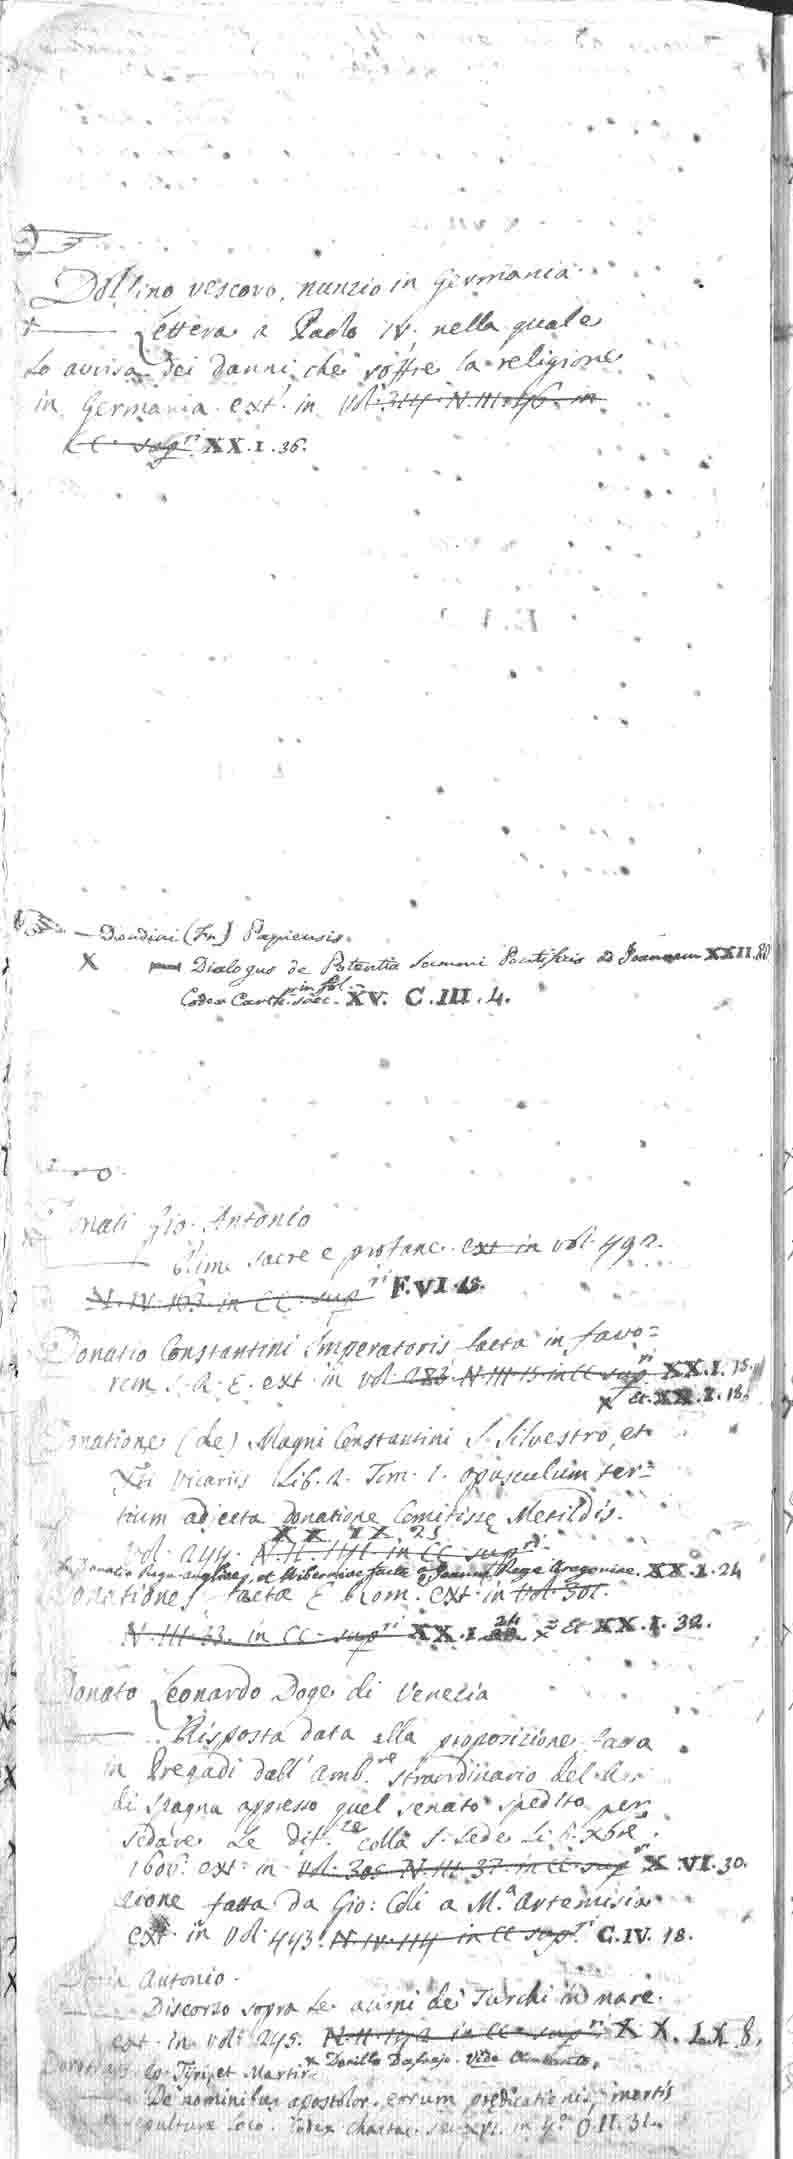 Dolfino vescovo, nunzio in Germania
Lettera a Paolo IV. nella quale
lo avvisa dei danni che soffre la religione
in Germania. ext. in vol. 314. N. III. 46. in
CC. sup.ri XX.I.36.
— Dondini (Fr.) Papiensis.
X Dialogus de Potentia Summi Pontificis ad Joannem XXII.
in fol.
Codex Carth. saec. XV. C.III.4.
Donati Gio. Antonio
Rime sacre e profane. ext in vol. 492.
N. IV. 163. in CC. sup.ri F.VI.
Donatio Constantini Imperatoris facta in favo=
rem S. R. E. ext. in vol. 283. N. III. 15. in CC sup.ri XX.I.15.
X et XX.I.18.
Donatione (de) Magni Constantini S. Silvestro, et
Xti Vicariis Lib. 2. Tom. 1. opusculum ter=
tium adjecta donatione Comitissę Metildis.
XX. IX. 23
Vol. 244. N. II. 191. in CC. sup.ri
X Donatio Regn. Angliae, et Hiberniae facta a Joanne Rege Aragoniae. XX.I.24
Donationes factae E. Rom. ext. in vol. 301.
24
N. III. 33. in CC. sup.ri XX.I. X et XX.I.32.
Donato Leonardo Doge di Venezia
Risposta data alla proposizione fatta
in Pregadi dall' Amb.re straordinario del Re
di Spagna appresso quel senato spedito per
sedare le dif.ze colla S. Sede li Xbre
1606. ext. in vol. 305 N. III. 37. in CC. sup.ri X.VI.30.
zione fatta da Gio: Celi a M.a Artemisia
ext. in vol. 443. N. IV. 114 in CC sup.ri C.IV.18.
Doria Antonio.
Discorso sopra le armi de' Turchi in mare.
ext. in vol. 245. N. II. 192 in CC. sup.ri XX. IX 8.
X Dorillo Dafneio. Vide
Dorotheus Ep. Tyri, et Martir
De nominibus apostolor. eorum predicationis, mortis
sepulturæ loco. Codex chartac. sec. XVI. in 4.o O.II.31.